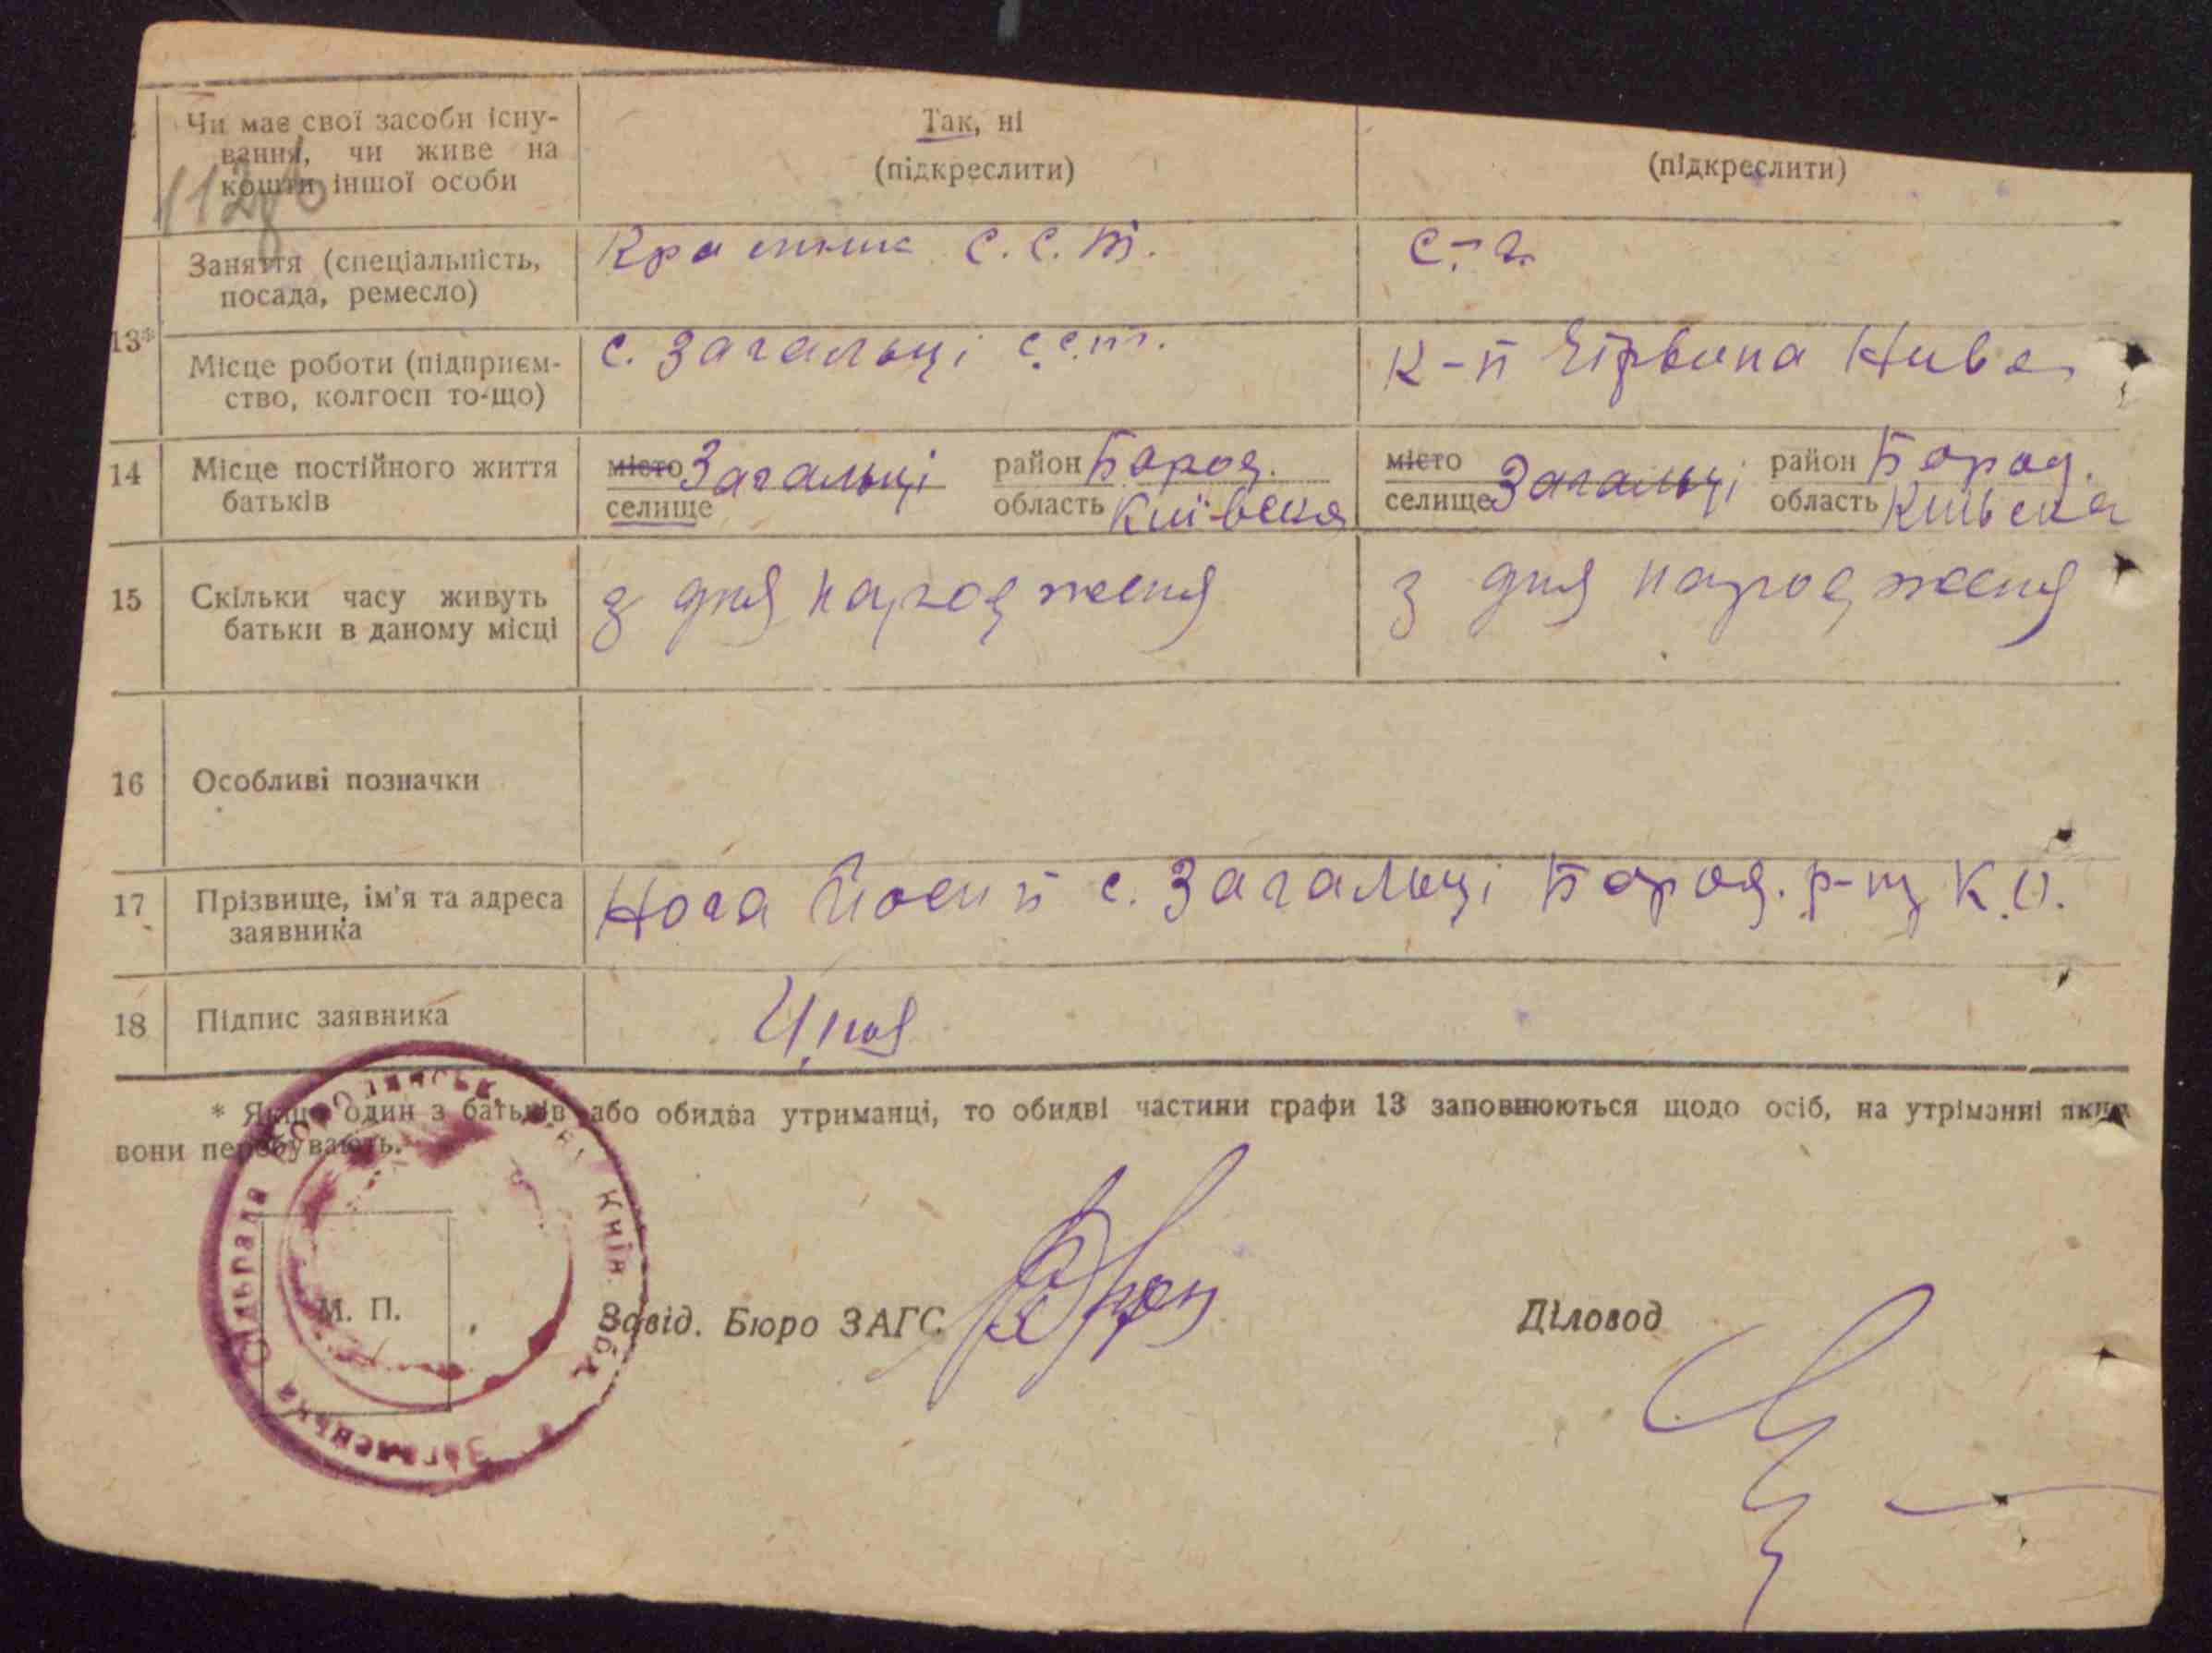 Чи має свої засоби існу-
вання, чи живе на
кошти іншої особи
Так, ні
(підкреслити)
(підкреслити)
Заняття (спеціальність,
посада, ремесло)
с.с.т.
с.-г.
13*
Місце роботи (підприєм-
ство, колгосп то-що)
с. Загальці с.с.т.
к-п Нива
14
Місце постійного життя
батьків
місто
селище
Загальці
район Бород.
область Київська
місто
селище
Загальці
район Бород.
область Київська
15
Скільки часу живуть
батьки в даному місці
з дня народження
з дня народження
16
Особливі позначки
17
Прізвище, ім'я та адреса
заявника
Нога Йосип с. Загальці Бород. р-ну К.О.
18
Підпис заявника
* Якщо один з батьків або обидва утриманці, то обидві частини графи 13 заповнюються щодо осіб, на утріманні яких
вони перебувають.
М. П.
Завід. Бюро ЗАГС
Діловод